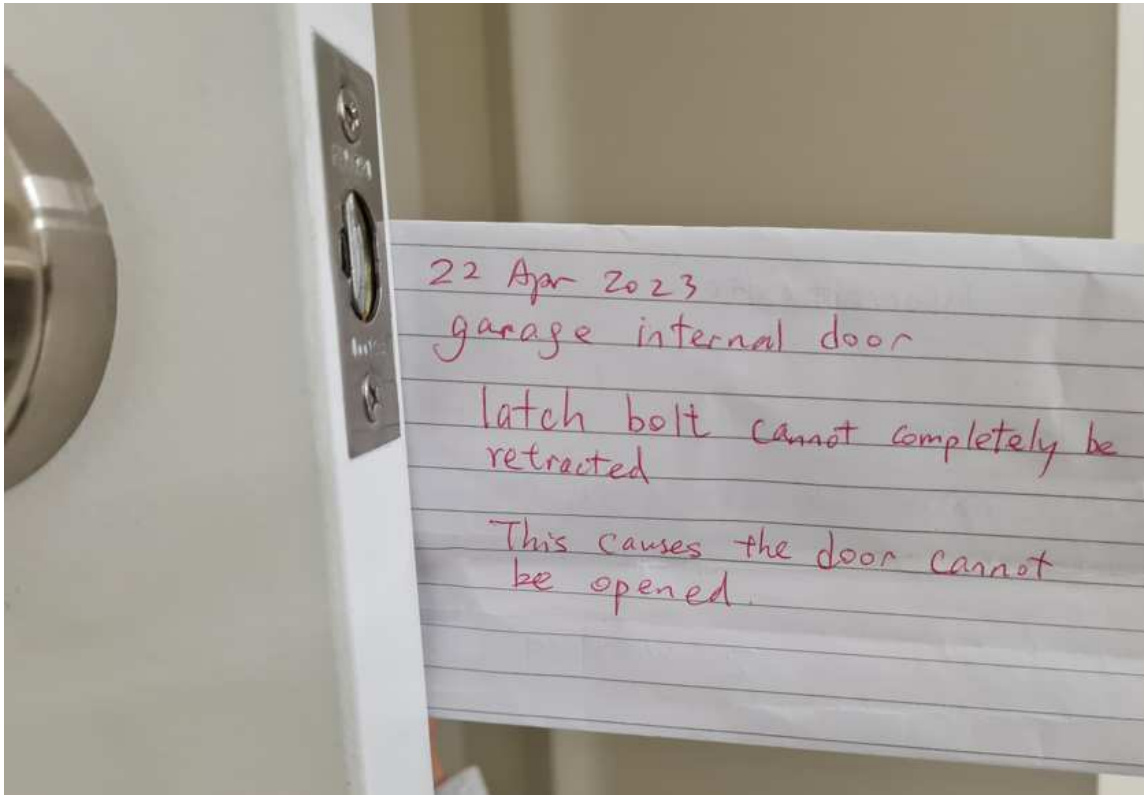 22 Apr 2023
garage internal door
latch bolt cannot completely be
retracted
This causes the door cannot
be opened.